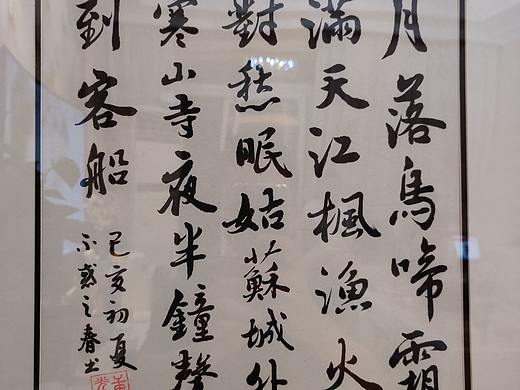 月落烏啼霜
滿天江楓漁火
對愁眠姑蘇城外
寒山寺夜半鐘聲
到客船
己亥初夏
不惑之春书